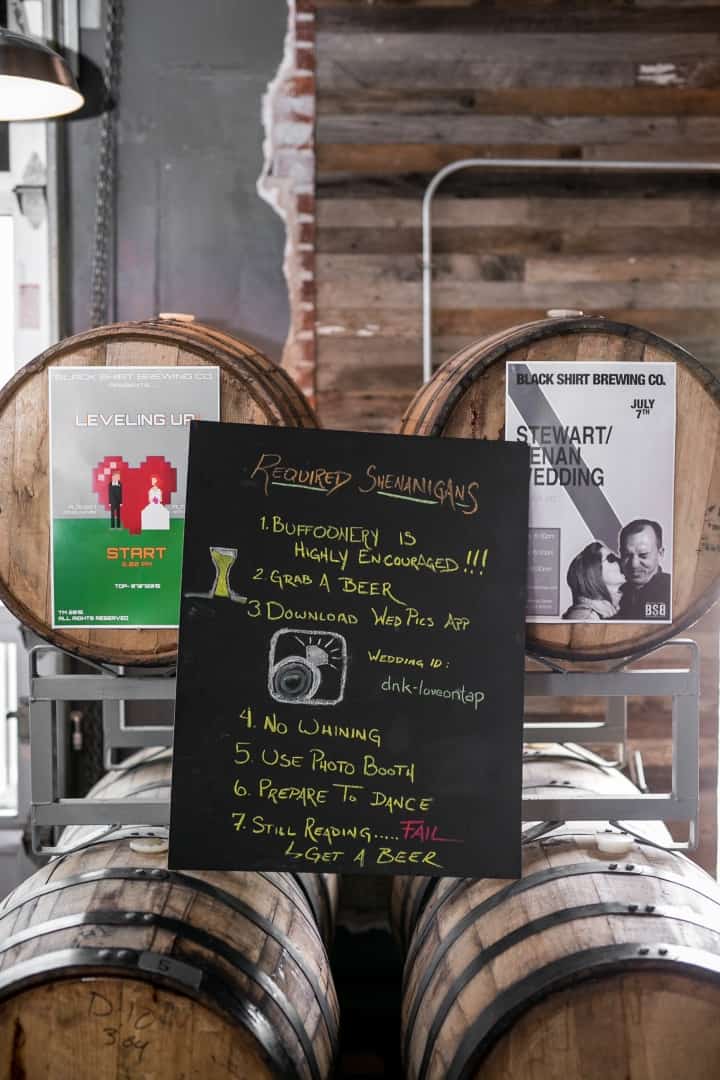 BLACK SHIRT BREWING CO.
PRESENTS...
LEVELING UP!
START
6.00 PM
TM 2015
ALL RIGHTS RESERVED
REQUIRED SHENANIGANS
1. BUFFOONERY IS
HIGHLY ENCOURAGED!!!
2. GRAB A BEER
3. DOWNLOAD WEDPICS APP
WEDDING ID:
dnk-loveontap
4. NO WHINING
5. USE PHOTO BOOTH
6. PREPARE TO DANCE
7. STILL READING..... FAIL
↳GET A BEER
BLACK SHIRT BREWING CO.
JULY
7TH
STEWART/
ENAN
EDDING
BSB
5
D-10
304